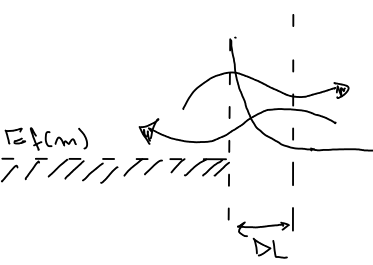 Ef(m)
DL